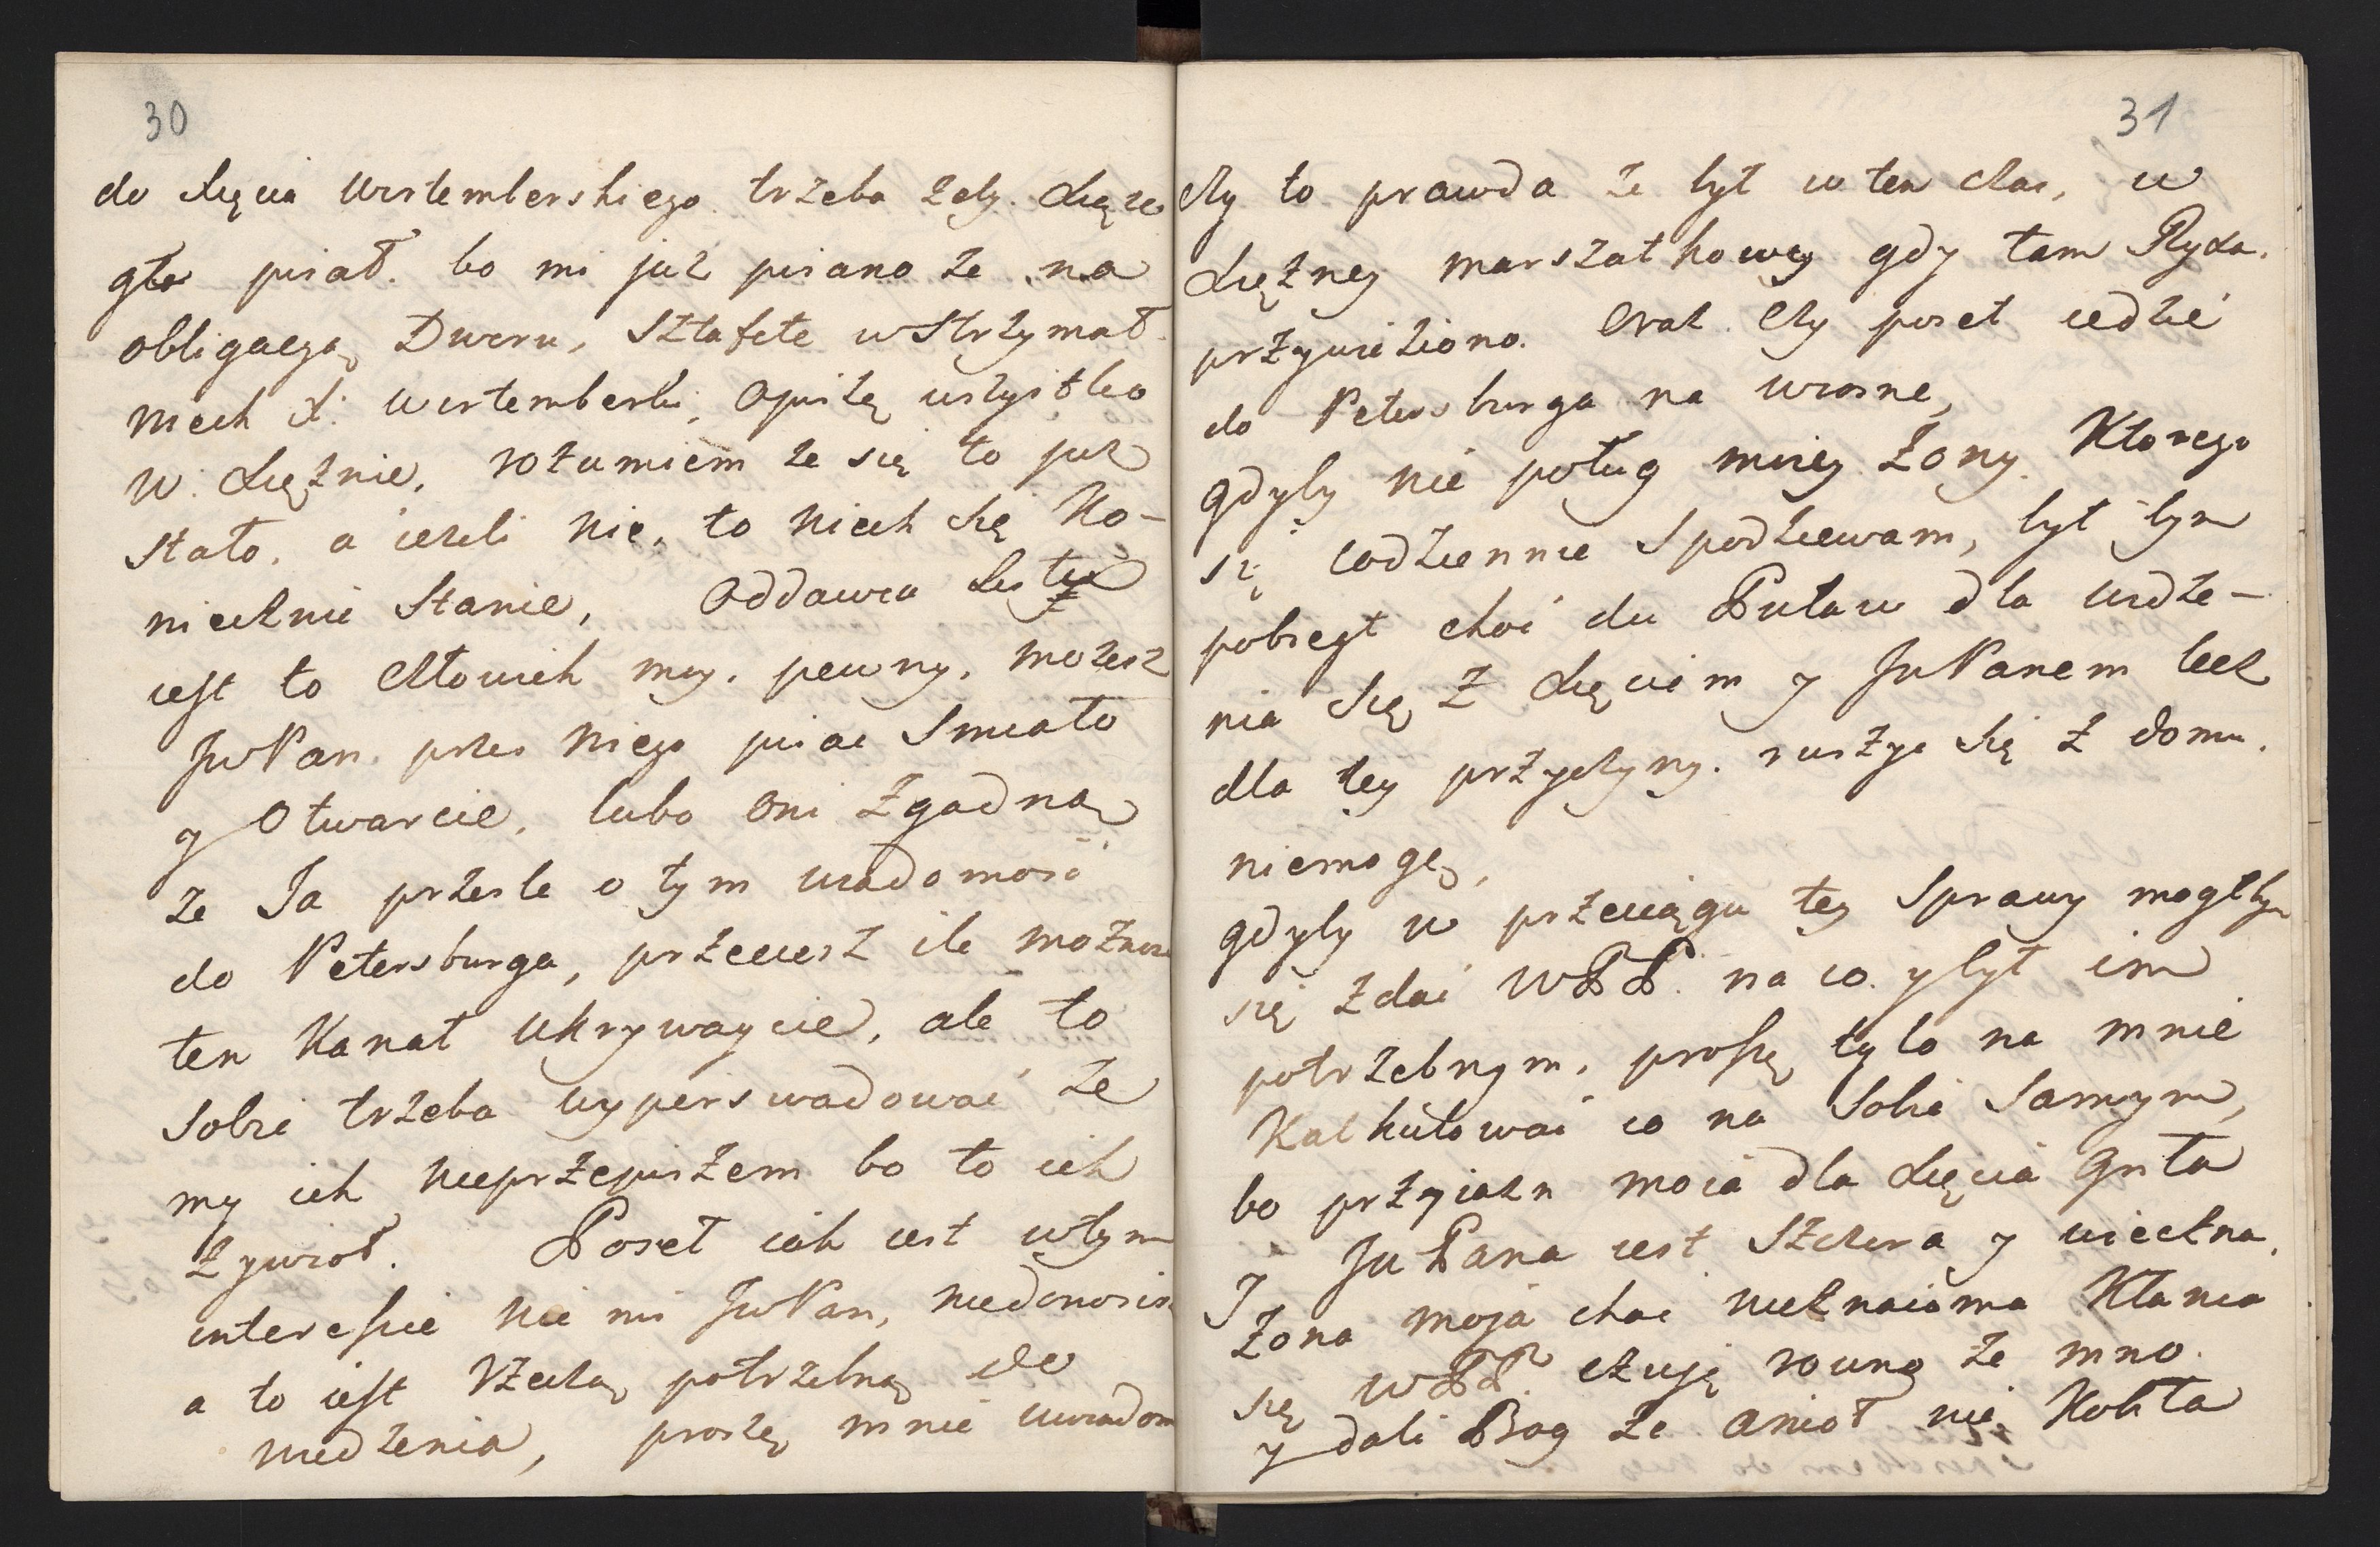 30
do Xięcia Wirtemberskiego trzeba żeby Xięże
gło pisał. bo mi już pisano że na
obligacyą Dworu, Sztafete wstrzymał.
niech X: Wirtemberski, Opiszę wszystko
w. Xiężnie, rozumiem ze się to już
stało, a iezeli nie, to niech się Ko-
niecznie Stanie, Oddawca Listu
iest to człowiek moy. pewny, możesz
JwPan. przez niego pisac Smiało
y Otwarcie, lubo Oni zgadną
że Ja przesłe o tym wiadomość
do Petersburga, przeciesz ile możnos
ten Kanał Ukrywaycie, ale to
Sobie trzeba wyperswadować że
my ich nieprzepiszem bo to ich
Zywioł. Poseł iak iest wtym
interessie nie mi JwPan, niedonosisz
a to iest Rzeczą potrzebną do
wiedzenia, proszę mnie uwiadom
31
czy to prawda że był w ten czas, u
Xiężney marszałkowey gdy tam Ryxa.
przywieziono. Oraz. Czy poseł iedzie
do Petersburga na wiosne,
gdyby nie poług mniey Żony. Ktorego
się codziennie Spodziewam, był bym
pobiegł choć do Puław dla widze-
nia się z Xięciem y JwPanem lecz
dla tey przyczyny. ruszyc się z domu.
niemogę,
gdyby w przeciągu tey Sprawy mogłbym
się zdać WPP. na co. y był im
potrzebnym, proszę tylo na mnie
Kalkułować co na Sobie Samym,
bo przyiazn moia dla Xięcia Grła
J JwPana iest Szczera y wieczna,
Żona moja choć nieznaioma Kłania
się WPP. czuję rouno że mno.
y dali Bog że anioł nie Kobita